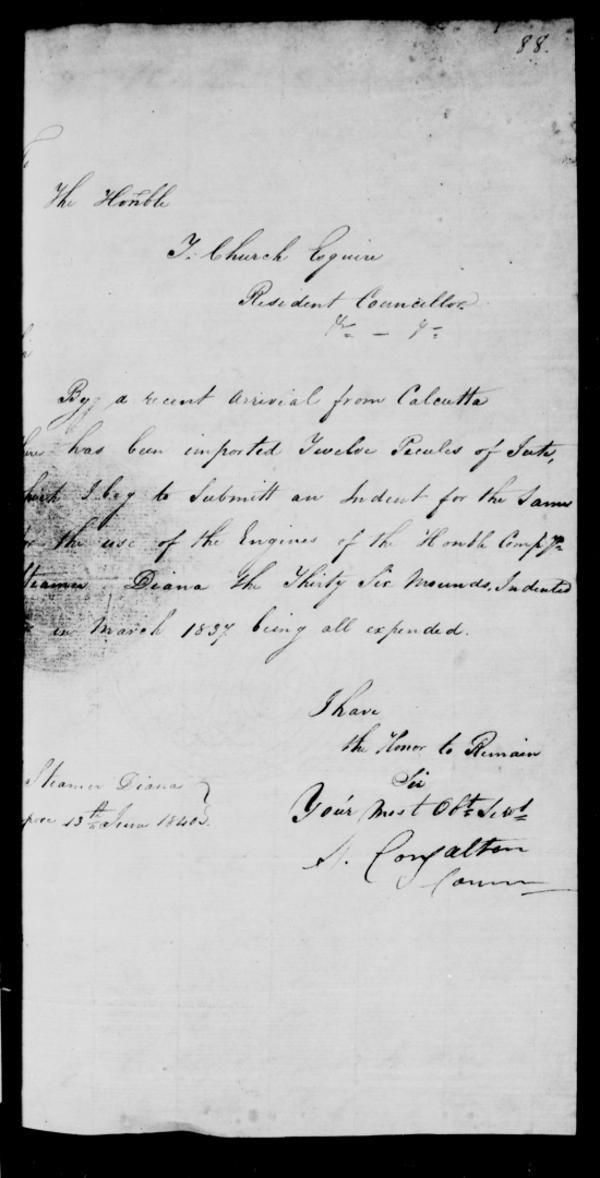 88.
The Honble
T. Church Esquire
Resident Councillor
&c — &c
By a recent arrival from Calcutta
has been imported Twelve Peculs of Jute,
I beg to Submitt an Indent for the Same
the use of the Engines of the Honble Compys
Steamer Diana the Thirty Six Mounds, Indented
in March 1837 being all expended.
I have
the Honor to Remain
Sir
Your Most Obt Servt
S. Congalton
Comm
Steamer Diana
13th June 1840